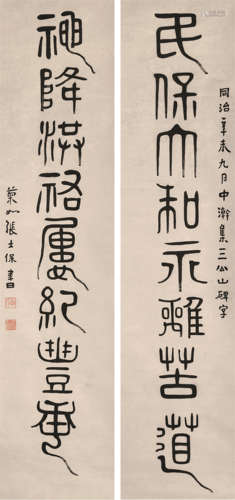 同治辛未九月中澣集三公山碑字
民保大和永離苦道
神降洪屢紀豐年
菊如張士保書